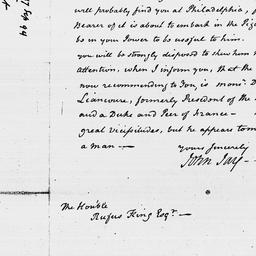 will probably find you at Philadelphia,
Bearer of it is about to embark in the
be in your Power to be useful to him.
you will be strongly disposed to shew him
Attention, when I inform you, that the
now recommending to You, is monsr. D
Liancourt, formerly President of the
and a Duke and Peer of France —
great vicissitudes, but he appears to me
a man —
yours sincerely
John Jay —
The Honble
Rufus King Esqr. —